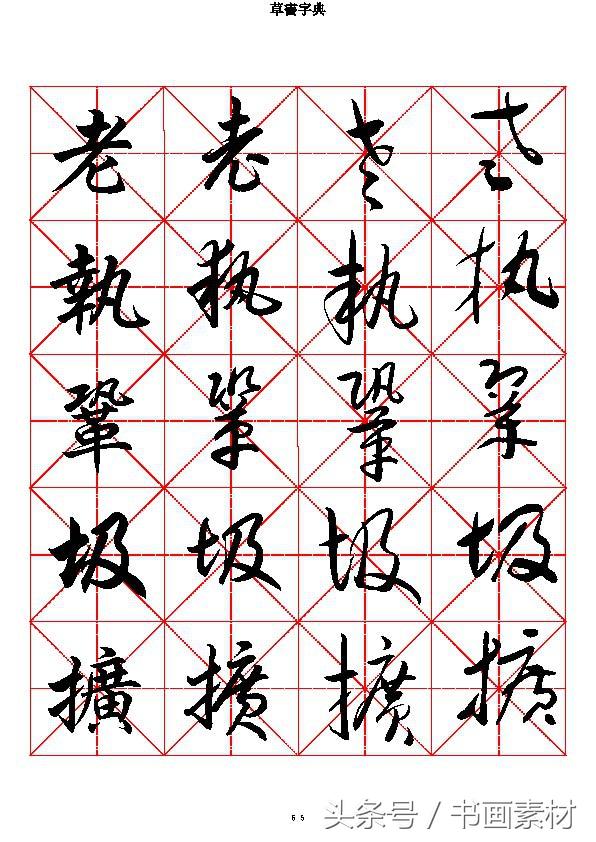 草書字典
老老老老
執執執执
鞏鞏鞏鞏
圾圾圾圾
擴擴擴擴
65
头条号 / 书画素材